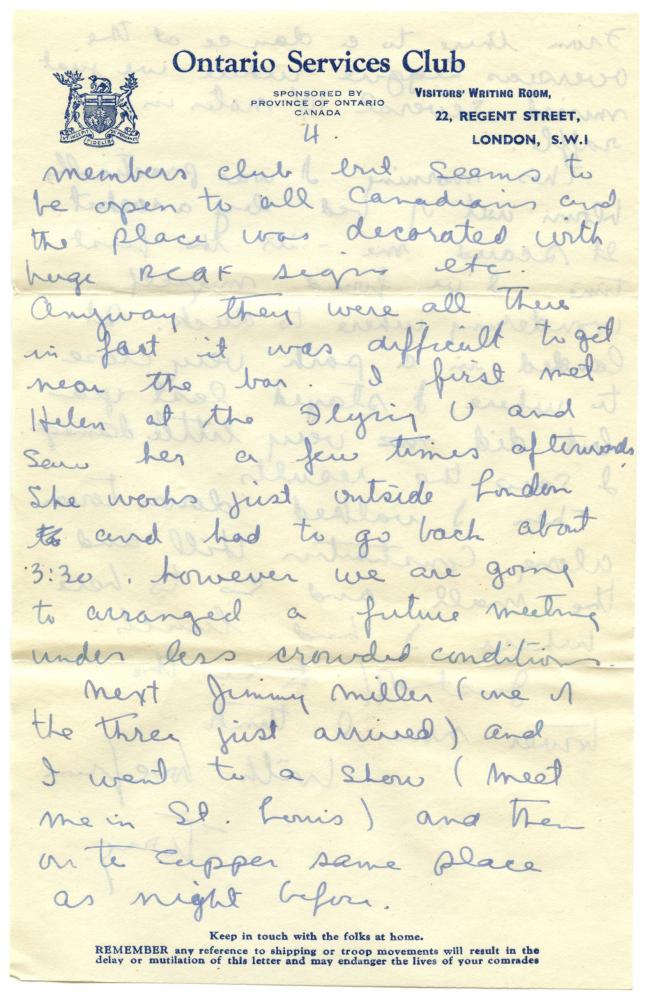 Ontario Services Club
SPONSORED BY
PROVINCE OF ONTARIO
CANADA
VISITORS' WRITING ROOM,
22, REGENT STREET,
LONDON, S.W.1
4.
members club but seems to
be open to all Canadians and
the place was decorated with
huge RCAF signs etc.
Anyway they were all there
in fact it was difficult to get
near the bar. I first met
Helen at the Flying U and
saw her a few times afterwards
She works just outside London
and had to go back about
3:30. however we are going
to arranged a future meeting
under less crowded conditions.
Next Jimmy Miller (one of
the three just arrived) and
I went to a show (Meet
me in St. Louis) and then
on to supper same place
as night before.
Keep in touch with the folks at home.
REMEMBER any reference to shipping or troop movements will result in the
delay or mutilation of this letter and may endanger the lives of your comrades